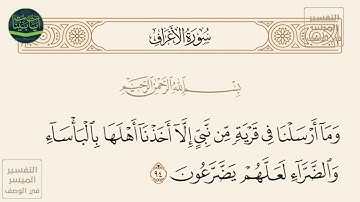 سُورَةُ الأَعْرَافِ
بِسْمِ اللَّهِ الرَّحْمَٰنِ الرَّحِيمِ
وَمَآ أَرْسَلْنَا فِى قَرْيَةٍ مِّن نَّبِىٍّ إِلَّآ أَخَذْنَآ أَهْلَهَا بِٱلْبَأْسَآءِ
وَٱلضَّرَّآءِ لَعَلَّهُمْ يَضَّرَّعُونَ ٩٤
التفسير
الميسر
في الوصف